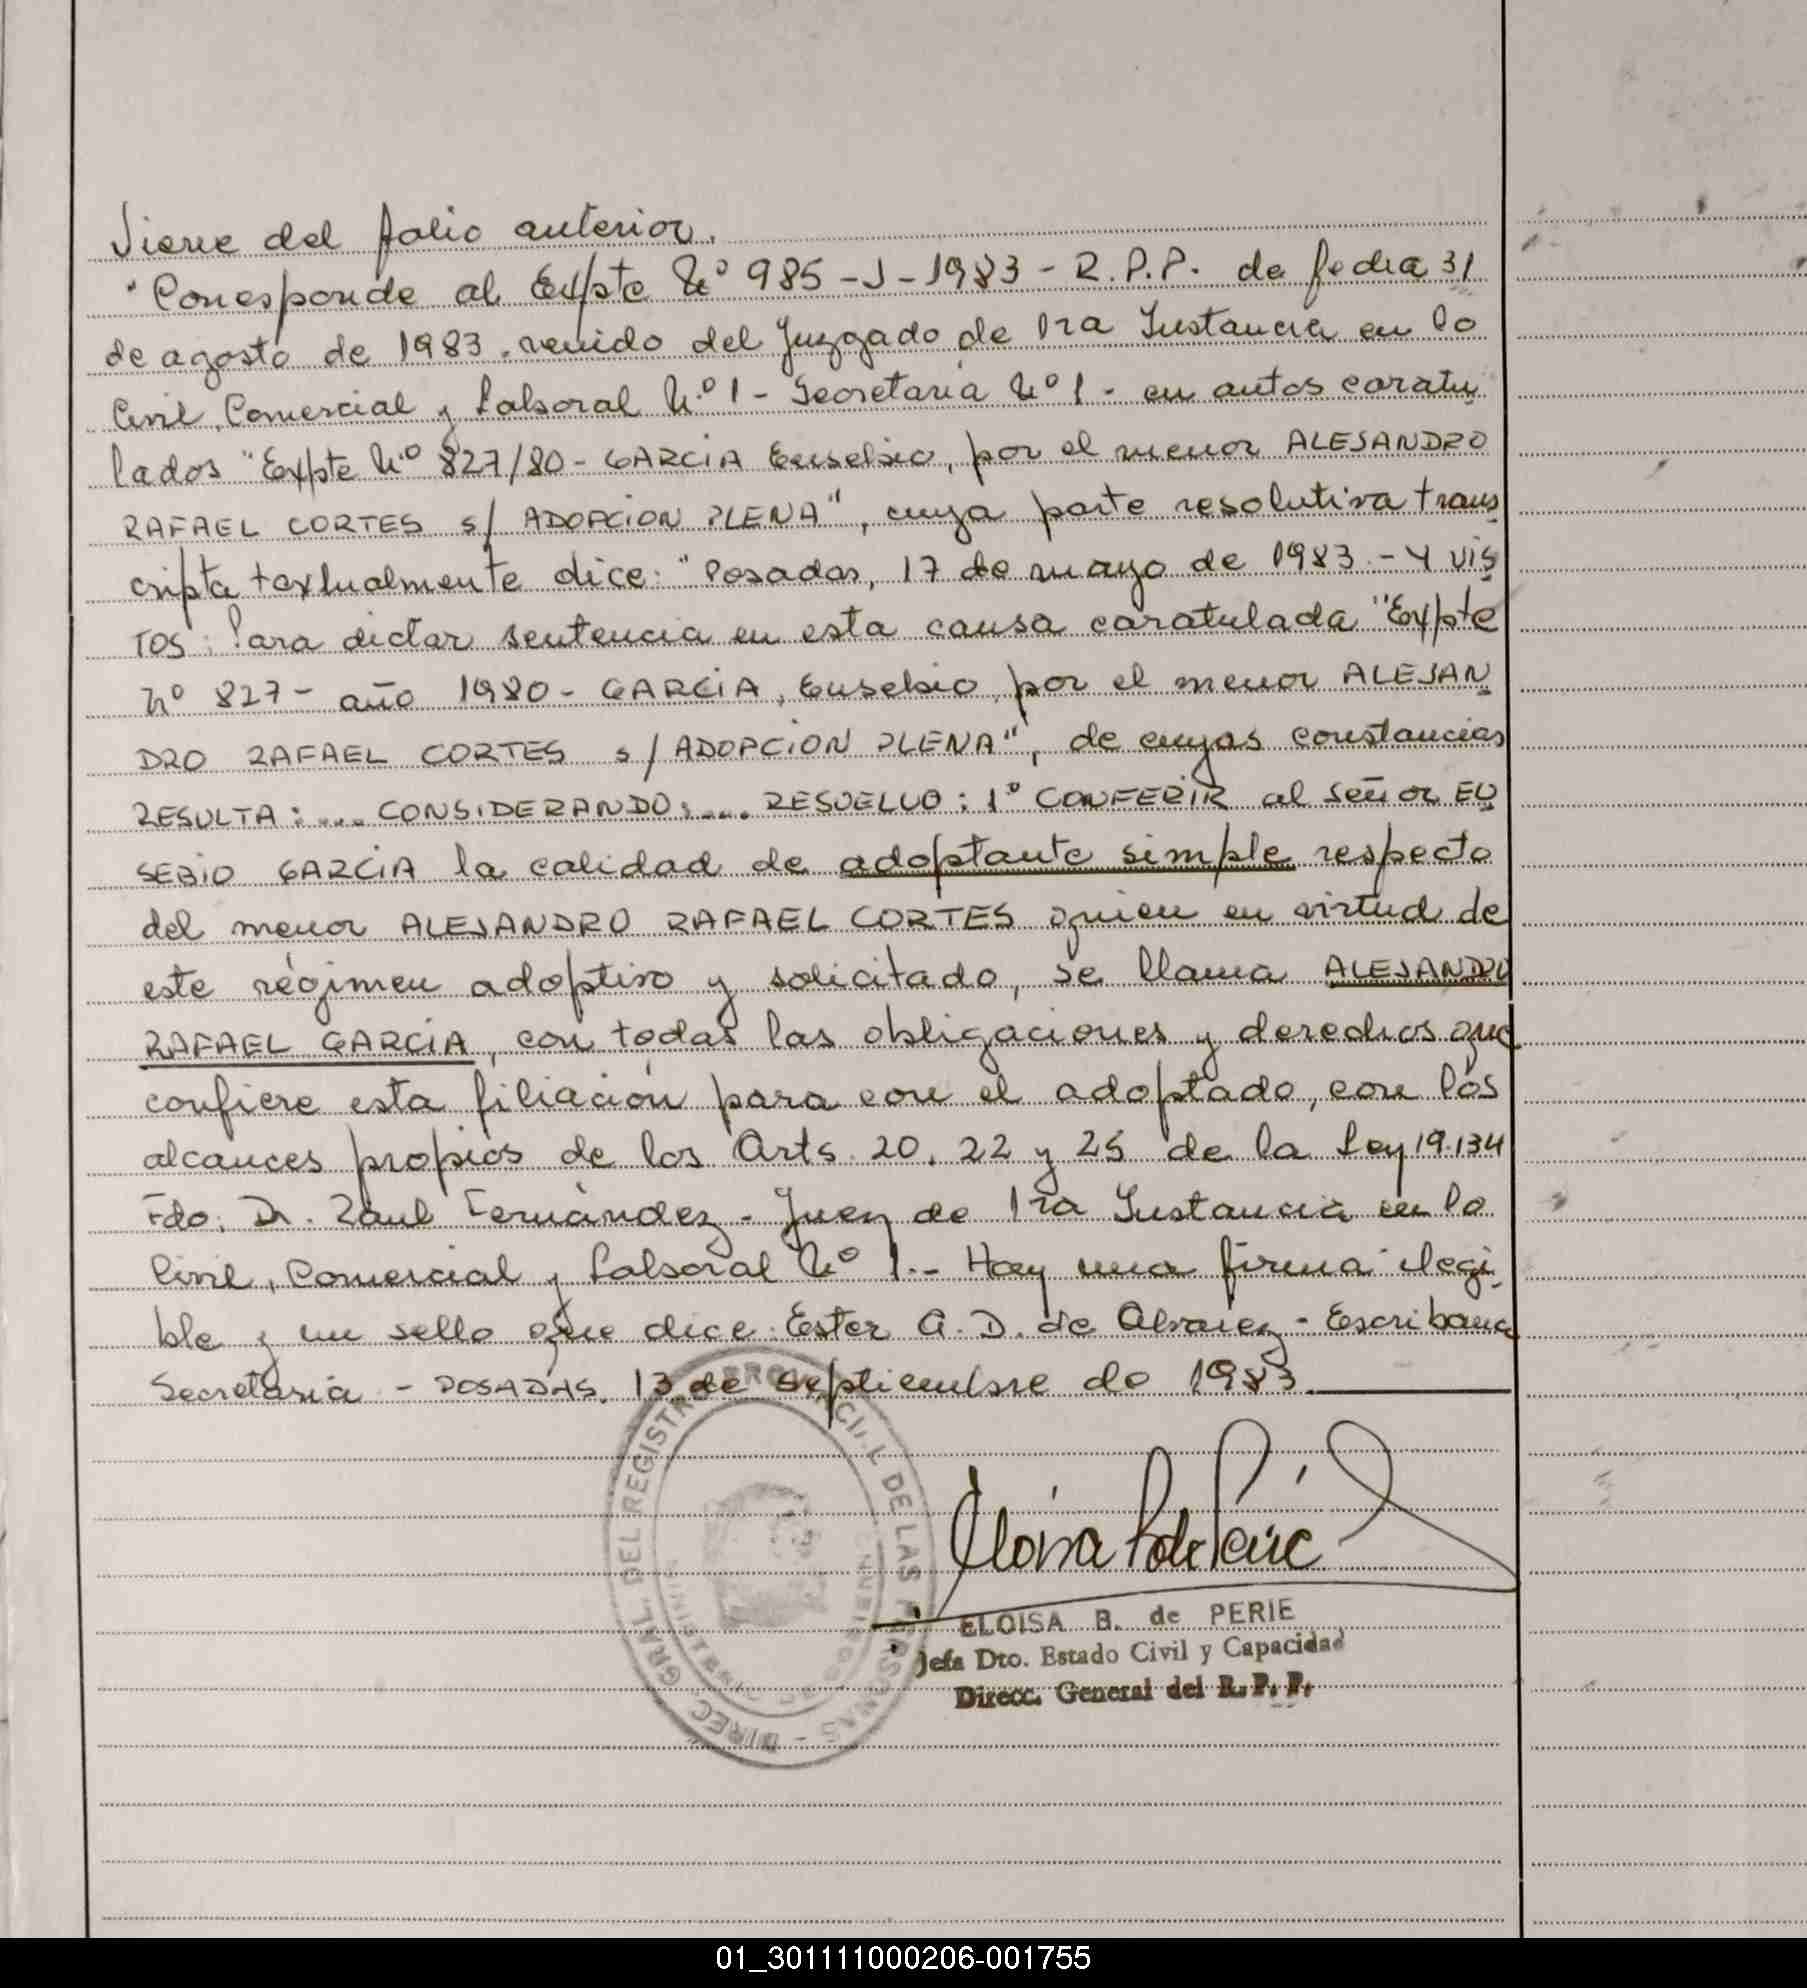 Viene del folio anterior.
"Corresponde al Expte Nº 985-J-1983-R.P.P. de fecha 31
de agosto de 1983, venido del Juzgado de 1ra Instancia en lo
Civil, Comercial y Laboral Nº 1 - Secretaria Nº 1 - en autos caratu
lados "Expte Nº 827/80 - GARCIA Eusebio, por el menor ALEJANDRO
RAFAEL CORTES s/ ADOPCION PLENA", cuya parte resolutiva trans
cripta textualmente dice: "Posadas, 17 de mayo de 1983.- Y VIS
TOS: Para dictar sentencia en esta causa caratulada "Expte
Nº 827 - año 1980 - GARCIA, Eusebio, por el menor ALEJAN
DRO RAFAEL CORTES s/ ADOPCION PLENA", de cuyas constancias
RESULTA: .... CONSIDERANDO: .... RESUELVO: 1º CONFERIR al señor EU
SEBIO GARCIA la calidad de adoptante simple respecto
del menor ALEJANDRO RAFAEL CORTES quien en virtud de
este régimen adoptivo y solicitado, se llama ALEJANDRO
RAFAEL GARCIA, con todas las obligaciones y derechos que
confiere esta filiación para con el adoptado, con los
alcances propios de los Arts. 20, 22 y 25 de la Ley 19.134
Fdo. Dr. Raul Fernández - Juez de 1ra Instancia en lo
Civil, Comercial y Laboral Nº 1.- Hay una firma ilegi
ble y un sello que dice: Ester A. D. de Alvarez - Escribana
Secretaria - POSADAS, 13 de septiembre de 1983.
DIREC. GRAL. DEL REGISTRO PROVINCIAL DE LAS PERSONAS -
MINISTERIO DE GOBIERNO
ELOISA B. de PERIE
Jefa Dto. Estado Civil y Capacidad
Direcc. General del R. P. P.
01_301111000206-001755